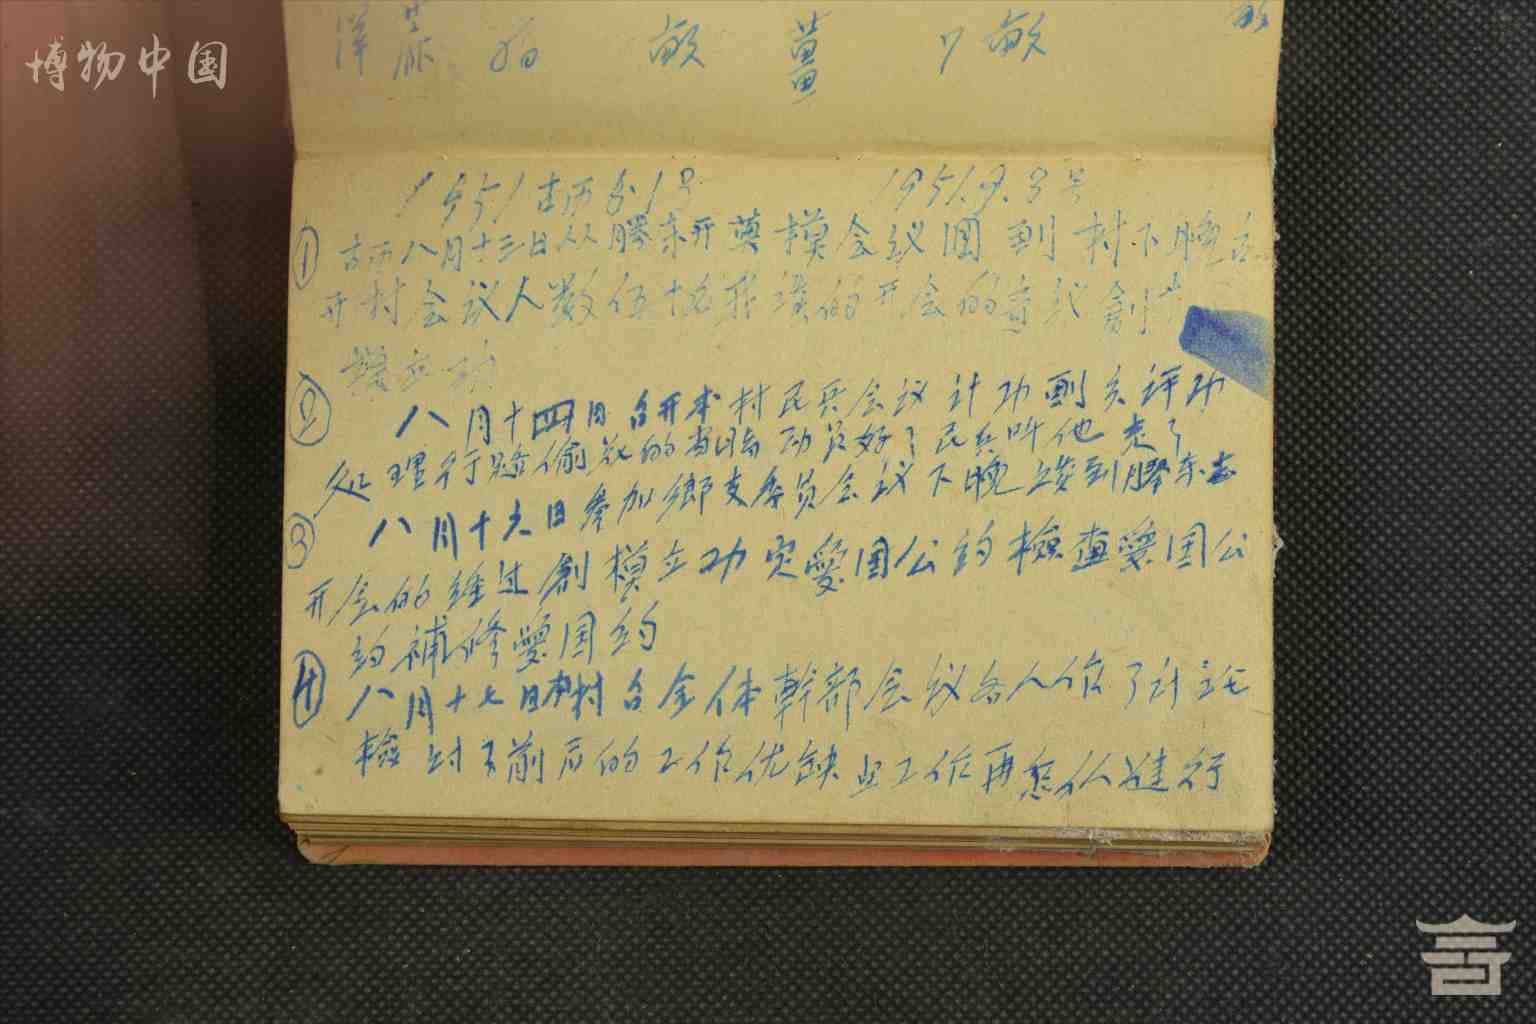 博物中国
洋 亩 薑 亩
1951古历8 1号 1951.9.3号
① 古历八月十三日从胶东开英模会议回到村下晚
开村会议人数伍十名 的开会的意义創
立功
② 八月十四日召开本村民兵会议计功 评功
处理行 偷 的 动员好了民兵叫他走了
③ 八月十六日参加鄉支委员会议下晚 到胶东
开会的经过創模立功定愛国公约檢查愛国公
约補修愛国约
④ 八月十七日本村召全体幹部会议各人作了
檢討了前后的工作优缺点工作再怎么进行